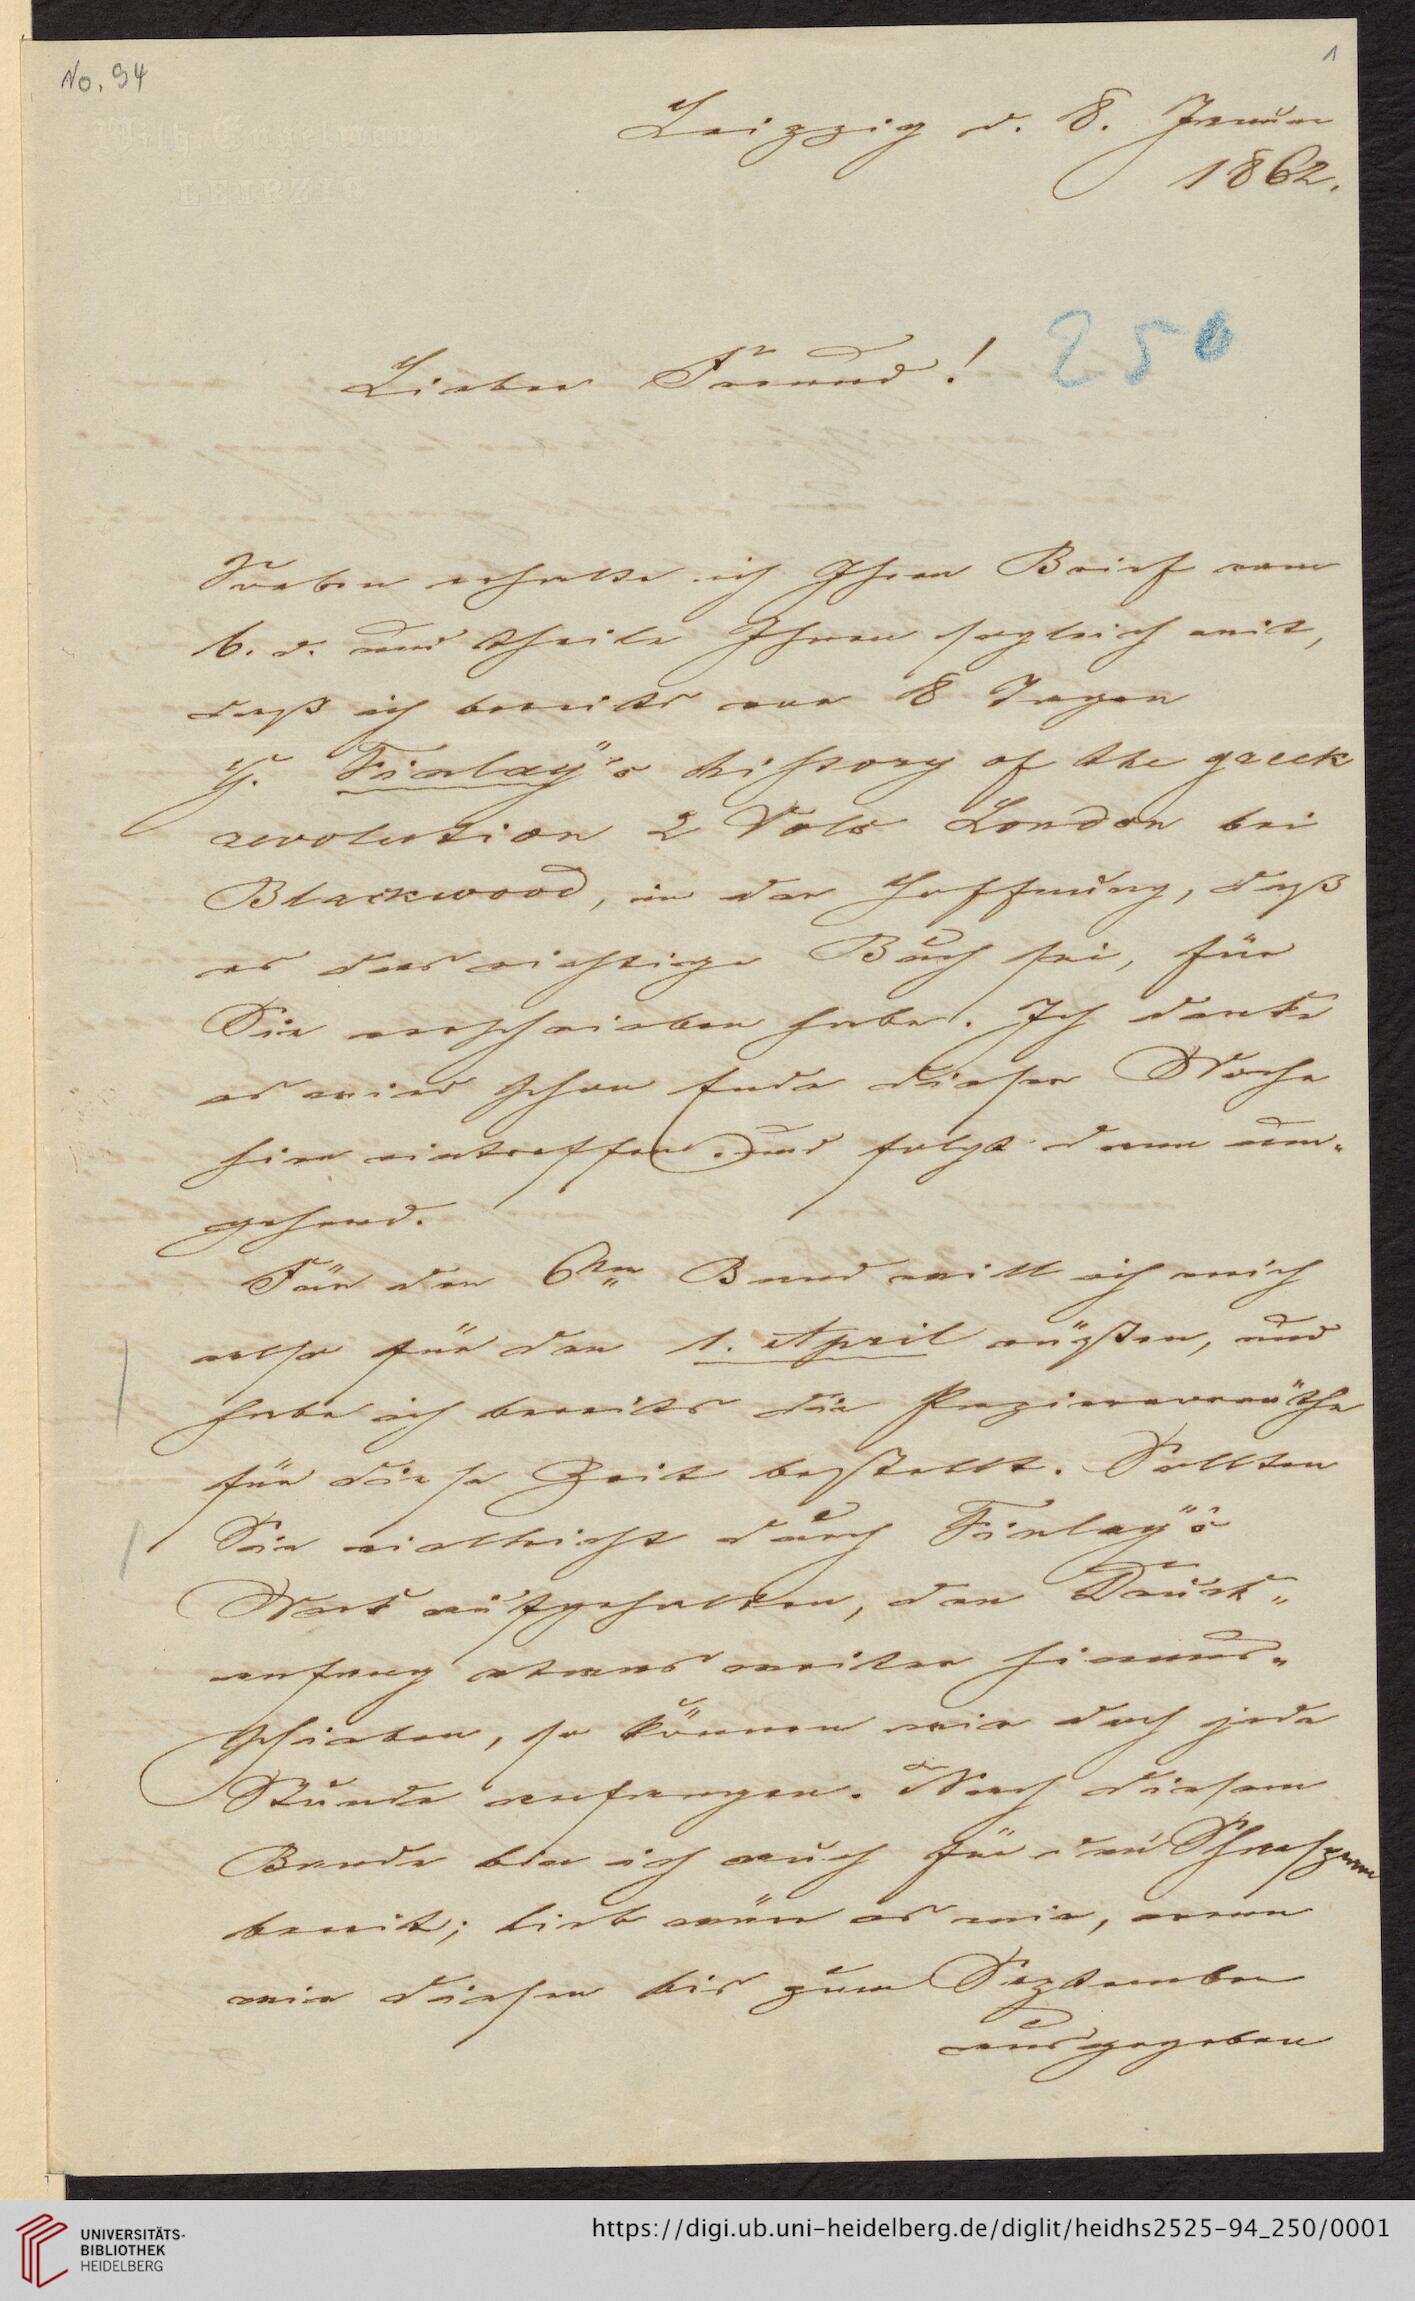 No. 94
1
Wilh Engelmann
LEIPZIG
Leipzig d. 8. Januar
1862.
250
Lieber Freund!
Soeben erhalte ich Ihren Brief vom
6. d. und theile Ihnen sogleich mit,
daß ich bereits vor 8 Tagen
G. Finlay's history of the greek
revolution 2 Vols London bei
Blackwood, in der Hoffnung, daß
es das richtige Buch sei, für
Sie verschrieben habe. Ich denke
es wird schon Ende dieser Woche
hier eintreffen und folgt dann um-
gehend.
Für den 6ten Band will ich mich
also für den 1. April rüsten, und
habe ich bereits die Papiervorräthe
für diese Zeit bestellt. Sollten
Sie vielleicht durch Finlay's
Werk aufgehalten, den Druck-
anfang etwas weiter hinaus-
schieben, so können wir doch jede
Stunde anfangen. Nach diesem
Bande bin ich auch für den Shakspeare
bereit; lieb wär es mir, wenn
wir diesen bis zum September
ausgegeben
UNIVERSITÄTS-
BIBLIOTHEK
HEIDELBERG
https://digi.ub.uni-heidelberg.de/diglit/heidhs2525-94_250/0001